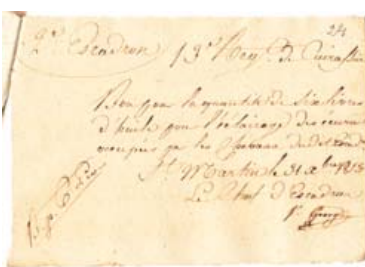 24
2e Escadron 13e Reg. de Cuirassiers
Bon pour la quantité de six livres
d'huile pour l'éclairage des écuries
occupées par les chevaux dudit Escad.
St. Martin le 31 Xbre 1813
Le Chef d'Escadron